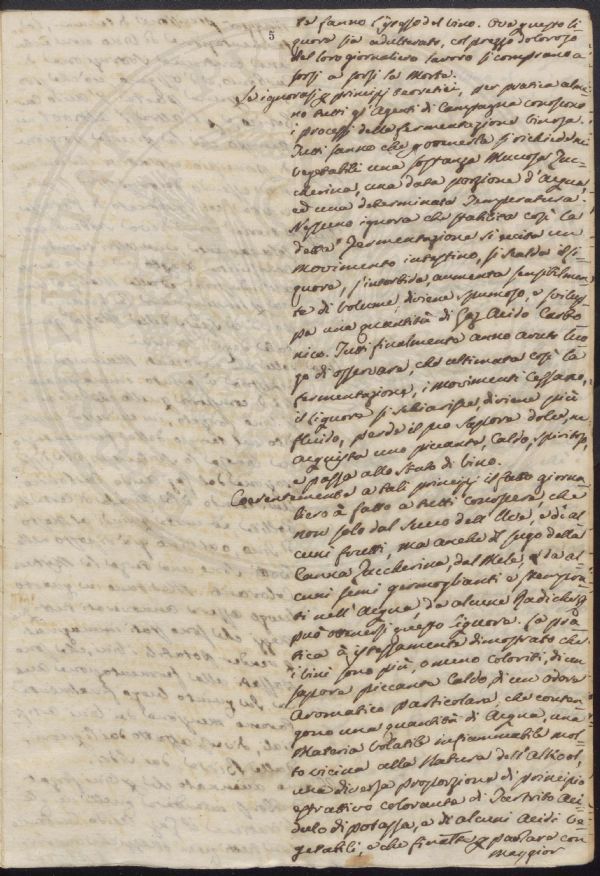 5
te fanno l'istesso del vino. Ove questo li-
quore sia adulterato, col prezzo doloroso
del loro giornaliero lavoro si comprano a
sorsi a sorsi la Morte.
Se ignorasi i principj teoretici, per pratica alme-
no tutti gl'Agenti di Campagna conoscono
i processi della fermentazione vinosa.
Tutti sanno che ottenerla si richiede ne'
vegetabili una sostanza Mucosa Zuc-
cherina, una data porzione d'Acqua,
ed una determinata Temperatura.
Nessuno ignora che stabilita così la
detta fermentazione si eccita un
Movimento intestino, si scalda il li-
quore, s'intorbida, aumenta sensibilmen-
te di volume, diviene spumoso, e svilup-
pa una quantità di Gaz Acido Carbo-
nico. Tutti finalmente anno avuto luo-
go di osservare, che ultimata così la
fermentazione, i movimenti cessano,
il liquore si schiarisce, diviene più
fluido, perde il suo sapore dolce, ne
acquista uno piccante, caldo, spiritoso,
e passa allo stato di vino.
Coerentemente a tali principj il fatto giorna-
liero à fatto a tutti conoscere, che
non solo dal Succo dell'Uve, e d'al-
cuni frutti, ma anche dal sugo della
Canna Zuccherina, dal Mele, e da al-
cuni semi germoglianti e stempra-
ti nell'Acqua da alcune Radiche si
può ottenersi questo liquore. La pra-
tica à istessamente dimostrato che
i vini sono più, o meno coloriti, di un
sapore piccante caldo, di un odore
Aromatico particolare, che conten-
gono una quantità di Acqua, una
Materia volatile infiammabile mol-
to vicina alla Natura dell'Alkool,
una diversa proporzione di principio
estrattivo colorante di Tartrito Aci-
dulo di potassa, e di alcuni Acidi ve-
getabili, e che parlare con
maggior